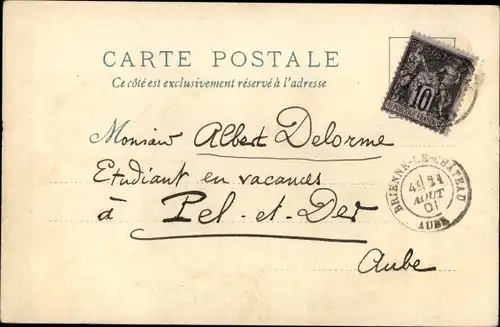 CARTE POSTALE
Ce côté est exclusivement réservé à l'adresse
10
Monsieur Albert Delorme
Etudiant en vacances
à Pel-et-Der
Aube
BRIENNE-LE-CHATEAU
AOUT
01
AUBE